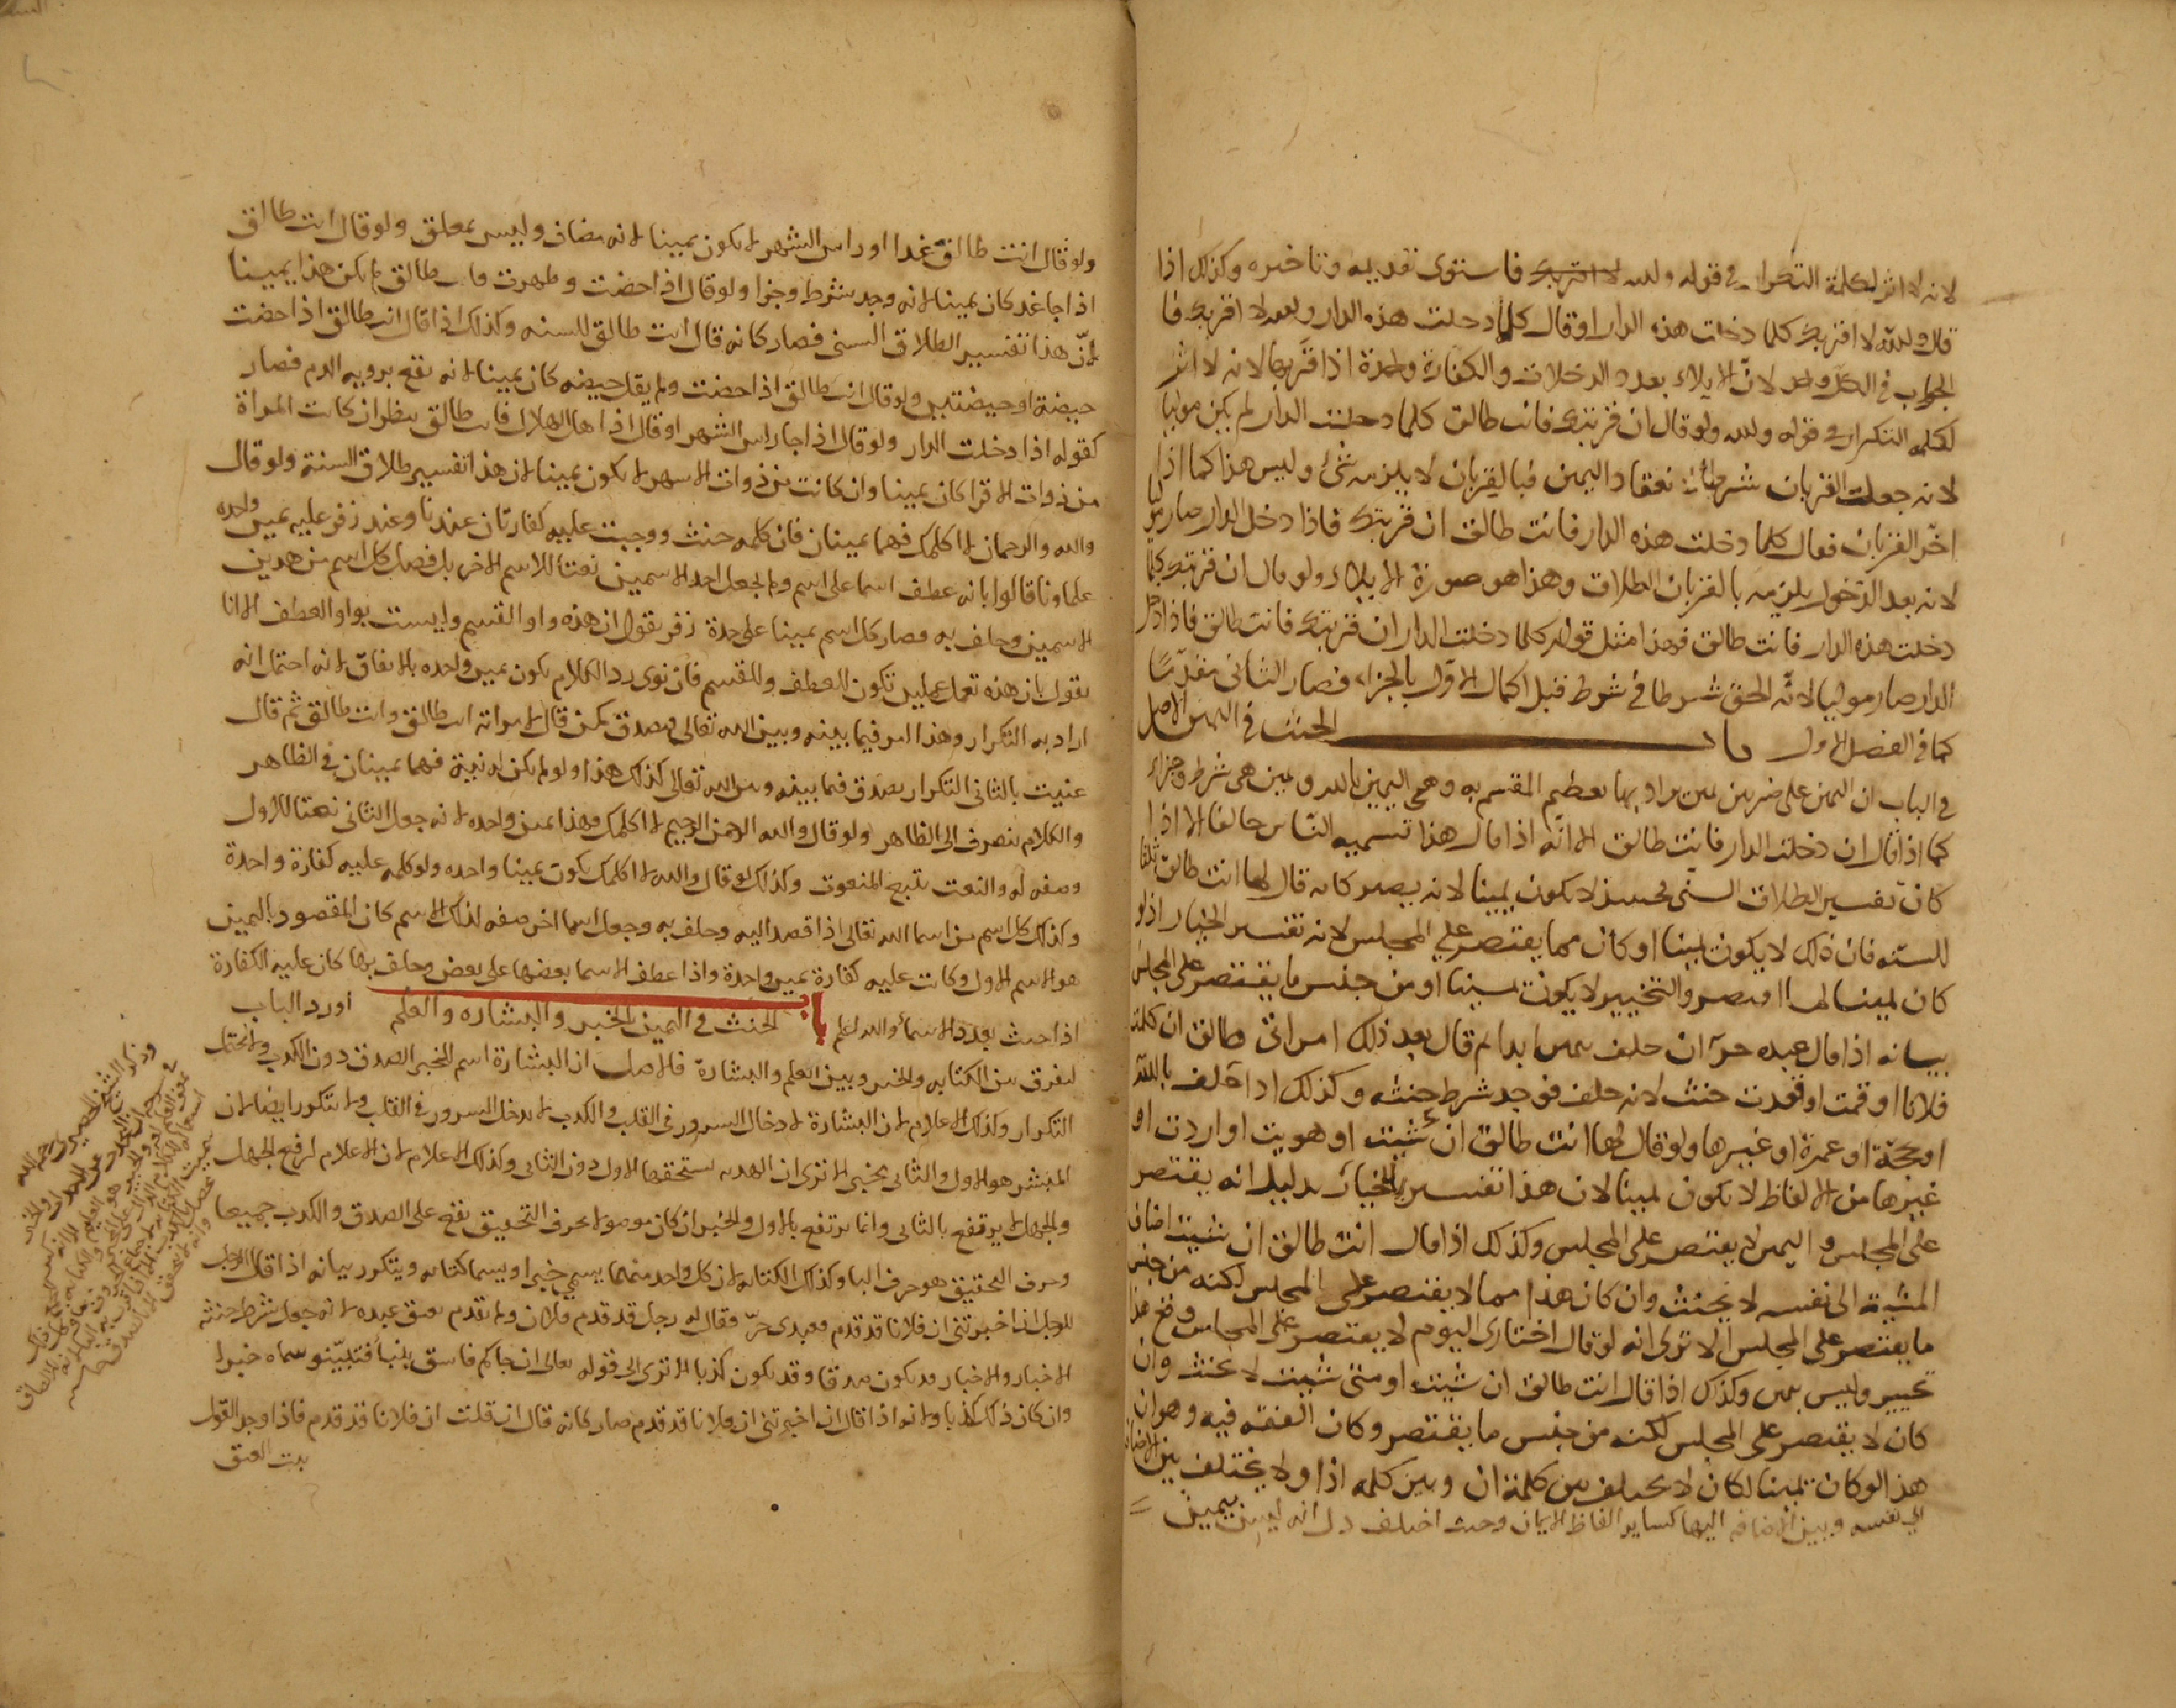 لانه لا اثر لكلمة التكرار في قوله والله لا اقربك فاستوى تقديمه وتاخيره وكذلك اذا
قال والله لا اقربك كلما دخلت هذه الدار او قال كلما دخلت هذه الدار والله لا اقربك فا
لجواب في الكل واحد لان الايلاء بعدد الدخلات والكفارة واحدة اذا قربها لانه لا اثر
لكلمة التكرار في قوله والله ولو قال ان قربتك فانت طالق كلما دخلت الدار لم يكن موليا
لانه جعلت القربان شرط انعقاد اليمين فبالقربان لا يلزمه شئ وليس هذا كما اذا
اخر القربان فقال كلما دخلت هذه الدار فانت طالق ان قربتك فاذا دخل الدار صار موليا
لانه بعد الدخول يلزمه بالقربان الطلاق وهذا هو صورة الايلاء ولو قال ان قربتك كلما
دخلت هذه الدار فانت طالق فهذا مثل قوله كلما دخلت الدار ان قربتك فانت طالق فاذا دخل
الدار صار موليا لانه الحق شرطا في شرط قبل اكمال الاول بالجزاء فصار الثاني مقدما
كما في الفصل الاول باب الحنث في اليمين الاصل
في الباب ان اليمين على ضربين يمين يراد بها تعظيم المقسم به وهي اليمين بالله ويمين هي شرط وجزاء
كما اذا قال ان دخلت الدار فانت طالق الا انه اذا قال هذا تسميه الناس حالفا الا اذا
كان تفسير الطلاق السني فحينئذ لا يكون يمينا لانه يصير كانه قال لها انت طالق ثلثا
للسنه فان ذلك لا يكون يمينا او كان مما يقتصر على المجلس لانه تفسير الخيار اذ لو
كان يمينا لما اقتصر والتخيير لا يكون يمينا او من جنس ما يقتصر على المجلس
بيانه اذا قال عبده حر ان حلف بيمين ابدا ثم قال بعد ذلك امراتي طالق ان كلمت
فلانا او قمت او قعدت حنث لانه حلف فوجد شرط حنثه وكذلك اذا حلف بالله
او بحجة او عمرة او غيرها ولو قال لها انت طالق ان شئت او هويت او اردت او
غيرها من الالفاظ لا يكون يمينا لان هذا تفسير الخيار بدليل انه يقتصر
على المجلس و اليمين لا يقتصر على المجلس وكذلك اذا قال انت طالق ان شئت اضاف
المشية الى نفسه لا يحنث وان كان هذا مما لا يقتصر على المجلس لكنه من جنس
ما يقتصر على المجلس الا ترى انه لو قال اختاري اليوم لا يقتصر على المجلس وقع هذا
تخيير وليس بيمين وكذلك اذا قال انت طالق ان شئت او متى شئت لا يحنث وان
كان لا يقتصر على المجلس لكنه من جنس ما يقتصر وكان الفقه فيه وهو ان
هذا لو كان يمينا لكان لا يختلف بين كلمة ان وبين كلمه اذا ولا يختلف بين الاضافة
الى نفسه وبين الاضافة اليها كساير الفاظ الايمان وحيث اختلف دل انه ليس بيمين
ولو قال انت طالق غدا او راس الشهر لا يكون يمينا لانه مضاف وليس بمعلق ولو قال انت طالق
اذا جا غد كان يمينا لانه وجد شرط وجزا ولو قال اذا حضت وطهرت فانت طالق لم يكن هذا يمينا
لان هذا تفسير الطلاق السني فصار كانه قال انت طالق للسنه وكذلك اذا قال انت طالق اذا حضت
حيضة او حيضتين ولو قال انت طالق اذا حضت ولم يقل حيضه كان يمينا لانه يقع بروية الدم فصار
كقوله اذا دخلت الدار ولو قال اذا جا راس الشهر او قال اذا اهل الهلال فانت طالق ينظر ان كانت المراة
من ذوات الاقرا كان يمينا وان كانت من ذوات الاشهر لا يكون يمينا لان هذا تفسير طلاق السنة ولو قال
والله والرحمان لا اكلمك فهما يمينان فان كلمه حنث ووجبت عليه كفارتان عندنا وعند زفر عليه يمين واحده
علماونا قالوا بانه عطف اسما على اسم ولم يجعل احد الاسمين نعتا للاسم الاخر بل فصل كل اسم من هذين
الاسمين وحلف به فصار كل اسم يمينا على حدة زفر يقول ان هذه واو القسم وليست بواو العطف الا انا
نقول بان هذه تعمل عملين تكون للعطف وللقسم فان نوى رد الكلام يكون يمين واحده بالاتفاق لانه احتمل انه
اراد به التكرار وهذا امر فيما بينه وبين الله تعالى فيصدق كمن قال لامراته انت طالق وانت طالق ثم قال
عنيت بالثاني التكرار يصدق فيما بينه وبين الله تعالى كذلك هذا ولو لم يكن له نية فهما يمينان في الظاهر
والكلام ينصرف الى الظاهر ولو قال والله الرحمن الرحيم لا اكلمك فهذا يمين واحده لانه جعل الثاني نعتا للاول
وصفه له والنعت يتبع المنعوت وكذلك لو قال والله لا اكلمك يكون يمينا واحده ولو كلمه عليه كفارة واحدة
وكذلك كل اسم من اسما الله تعالى اذا قصد اليه وحلف به وجعل اسما اخر صفه لذلك الاسم كان المقصود باليمين
هو الاسم الاول وكانت عليه كفارة يمين واحدة واذا عطف الاسما بعضها على بعض وحلف بها كان عليه الكفارة
اذا حنث بعدد الاسماء والله اعلم باب الحنث في اليمين الخبر والبشاره والعلم اورد الباب
لفرق بين الكتابه والخبر وبين العلم والبشارة فالاصل ان البشارة اسم للخبر الصدق دون الكذب ولا تحتمل
التكرار وكذلك الاعلام لان البشارة لادخال السرور في القلب والكذب لا يدخل السرور في القلب ولا تتكرر ايضا لان
المبشر هو الاول والثاني يخبر الا ترى ان الهديه يستحقها الاول دون الثاني وكذلك الاعلام لان الاعلام لرفع الجهل
والجهل يرتفع بالثاني وانما يرتفع بالاول والخبر ان كان موصولا بحرف التحقيق يقع على الصدق والكذب جميعا
وحرف التحقيق هو حرف البا وكذلك الكتابه لان كل واحد منهما يسمى خبرا ويسما كتابه ويتكرر بيانه اذا قال الرجل
للرجل اذا خبرتني ان فلانا قد قدم فعبدي حر فقال له رجل قد قدم فلان ولم يقدم يعتق عبده لانه جعل شرط حنثه
الاخبار والاخبار قد يكون صدقا وقد يكون كذبا الا ترى الى قوله تعالى ان جاكم فاسق بنبا فتبينو سماه خبرا
وان كان ذلك كذبا ولانه اذا قال ان اخبرتني ان فلانا قد قدم صار كانه قال ان قلت ان فلانا قد قدم فاذا وجد القول
يثبت العتق
وذكر الشيخ الحصيري رحمه الله